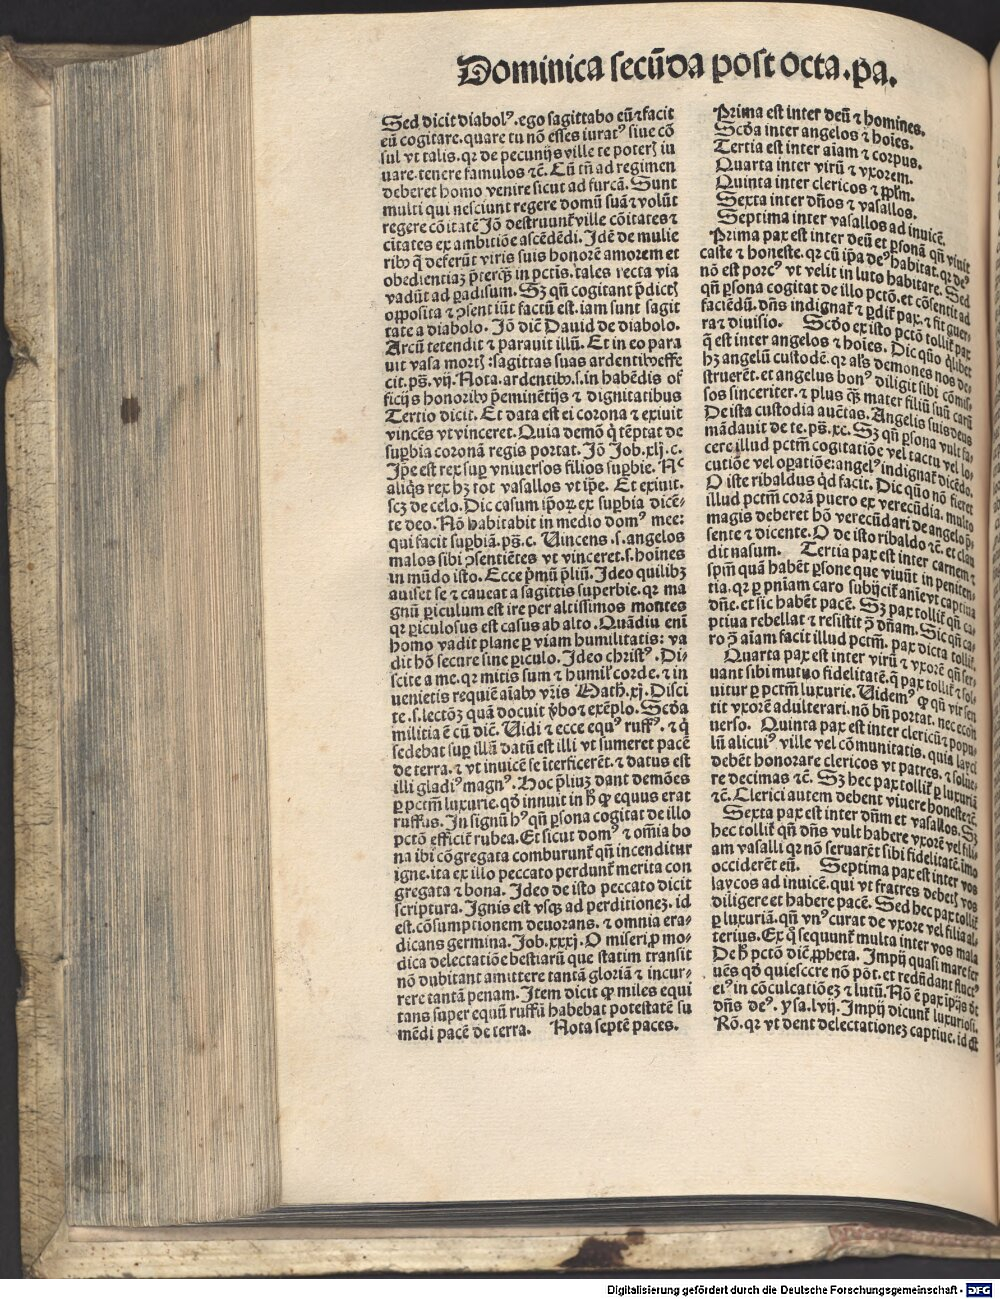 Dominica secūda post octa.pa.
Sed dicit diabolꝰ.ego sagittabo eū ⁊ facit
eū cogitare.quare tu nō esses iuratꝰ siue cō
sul vt talis.qr de pecunijs ville te poterꝭ iu
uare.tenere famulos ⁊c̄. Cū tn̄ ad regimen
deberet homo venire sicut ad furcā. Sunt
multi qui nesciunt regere domū suā ⁊ volūt
regere cōitatē Jō destruunt̄ ville cōitates ⁊
citates ex ambitiōe ascēdēdi. Jdē de mulie
ribꝰ q̄ deferūt viris suis honorē amorem et
obedientiaꝫ p̄terqꝫ in pctīs.tales recta via
vadūt ad ꝑadisum. Sꝫ qn̄ cogitant p̄dictꝭ
opposita ⁊ ꝯsentiūt factū est.iam sunt sagit
tate a diabolo. Jō dic̄ Dauid de diabolo.
Arcū tetendit ⁊ parauit illū. Et in eo para
uit vasa mortꝭ:sagittas suas ardentibꝰ effe
cit.ps̄.vij. Nota.ardentibꝰ.i.in habēdis of
ficijs honoribꝰ p̄eminētijs ⁊ dignitatibus
Tertio dicit. Et data est ei corona ⁊ exiuit
vincēs vt vinceret. Quia demō q̇ tēptat de
suꝑbia coronā regis portat. Jō Job.xlj.c.
Jp̄e est rex suꝑ vniuersos filios suꝑbie. Nᶜ
aliq̇s rex hꝫ tot vasallos vt ip̄e. Et exiuit.
scꝫ de celo. Dic casum ip̄oꝝ ex suꝑbia dicē-
te deo. Nō habitabit in medio domꝰ mee:
qui facit suꝑbiā.ps̄.c. Vincens.s.angelos
malos sibi ꝯsentiētes vt vinceret.s.hoīnes
in mūdo isto. Ecce p̄mū p̄liū. Jdeo quilibꝫ
auiset se ⁊ caueat a sagittis superbie.qr ma
gnū ꝑiculum est ire per altissimos montes
qr ꝑiculosus est casus ab alto. Quādiu eni
homo vadit plane ꝑ viam humilitatis: va
dit hō secure sine ꝑiculo. Jdeo christꝰ. Di-
scite a me.qr mitis sum ⁊ humil̄ corde.⁊ in
uenietis requiē aīabꝰ vr̄is Math.xj. Disci
te.s.lectōꝫ quā docuit v̄bo ⁊ exēplo. Scd̄a
militia ē cū dic̄. Vidi ⁊ ecce equꝰ ruffꝰ.⁊ q̇
sedebat suꝑ illū datū est illi vt sumeret pacē
de terra.⁊ vt inuicē se īterficerēt.⁊ datus est
illi gladiꝰ magnꝰ. Hoc p̄liuꝫ dant demōes
ꝑ pctm̄ luxurie.qd̄ innuit in h̄ ꝙ equus erat
ruffus. Jn signū hꝰ qn̄ ꝑsona cogitat de illo
pctō efficit̄ rubea. Et sicut domꝰ ⁊ om̄ia bo
na ibi cōgregata comburunt̄ qn̄ incenditur
igne.ita ex illo peccato perdunt̄ merita con
gregata ⁊ bona. Jdeo de isto peccato dicit
scriptura. Jgnis est vsqꝫ ad perditioneꝫ.id
est.cōsumptionem deuorans.⁊ omnia era-
dicans germina. Job.xxxj. O miseri.ꝓ mo-
dica delectatiōe bestiarū que statim transit
nō dubitant amittere tantā gloriā ⁊ incur-
rere tantā penam. Jtem dicit ꝙ miles equi
tans super equū ruffū habebat potestatē su
mēdi pacē de terra. Nota septē paces.
Prima est inter deū ⁊ homines.
Scd̄a inter angelos ⁊ hoīes.
Tertia est inter aīam ⁊ corpus.
Quarta inter virū ⁊ vxorem.
Quinta inter clericos ⁊ ppl̄m.
Sexta inter dn̄os ⁊ vasallos.
Septima inter vasallos ad inuicē.
Prima pax est inter deū et ꝑsonā qn̄ viuit
caste ⁊ honeste.qr cū ip̄a deꝰ habitat.qr deꝰ
nō est porcꝰ vt velit in luto habitare. Sed
qn̄ ꝑsona cogitat de illo pctō.et cōsentit ad
faciēdū.dn̄s indignat̄ ⁊ ꝑdit̄ pax.⁊ fit guer-
ra ⁊ diuisio. Scd̄o ex isto pctō tollit̄ pax
q̄ est inter angelos ⁊ hoīes. Dic quō q̇libet
hꝫ angelū custodē.qr al's demones nos de-
struerēt.et angelus bonꝰ diligit sibi cōmis-
sos sinceriter.⁊ plus qꝫ mater filiū suū carū
De ista custodia auc̄tas. Angelis suis deus
mādauit de te.ps̄.xc. Sꝫ qn̄ ꝑsona vult fa-
cere illud pctm̄ cogitatiōe vel tactu vel lo-
cutiōe vel oꝑatiōe:angelꝰ indignat̄ dicēdo.
O iste ribaldus qd facit. Dic quō nō fieret
illud pctm̄ corā puero ex verecūdia.multo
magis deberet hō verecūdari de angelo p̄-
sente ⁊ dicente. O de isto ribaldo ⁊c̄.et clau
dit nasum. Tertia pax est inter carnem ⁊
spm̄ quā habēt ꝑsone que viuūt in peniten-
tia.qr ꝑ pniam caro subijcit̄ aīe vt captiua
dn̄e.et sic habēt pacē. Sꝫ pax tollit̄ qn̄ ca-
ptiua rebellat ⁊ resistit ꝯ̄ dn̄am. Sic qn̄ ca-
ro ꝯ̄ aīam facit illud pctm̄.pax dicta tollit̄.
Quarta pax est inter virū ⁊ vxorē qn̄ ser-
uant sibi mutuo fidelitatē.q̄ pax tollit̄ ⁊ sol-
uitur ꝑ pctm̄ luxurie. Videmꝰ ꝙ qn̄ vir sen
tit vxorē adulterari.nō bn̄ portat.nec ecōn
uerso. Quinta pax est inter clericū ⁊ popu-
lū alicuiꝰ ville vel cōmunitatis.quia layci
debēt honorare clericos vt patres.⁊ solue-
re decimas ⁊c̄. Sꝫ hec pax tollit̄ ꝑ luxuriā
⁊c̄. Clerici autem debent viuere honeste ⁊c̄.
Sexta pax est inter dn̄m et vasallos. Sꝫ
hec tollit̄ qn̄ dn̄s vult habere vxorē vel fili-
am vasalli qr nō seruarēt sibi fidelitatē.imo
occiderēt eū. Septima pax est inter vos
laycos ad inuicē.qui vt fratres debetꝭ vos
diligere et habere pacē. Sed hec pax tollit̄
ꝑ luxuriā.qn̄ vnꝰ curat de vxore vel filia al-
terius. Ex q̊ sequunt̄ multa inter vos mala
De h̄ pctō dic̄ ꝓpheta. Jmpij quasi mare fer
uēs qd̄ quiescere nō pōt.et redūdant fluctꝰ
eiꝰ in cōculcatiōeꝫ ⁊ lutū. Nō ē pax ipijs dt̄
dn̄s deꝰ. ysa.lvij. Jmpij dicunt̄ luxuriosi.
Rō.qr vt dent delectationeꝫ captiue.id est
Digitalisierung gefördert durch die Deutsche Forschungsgemeinschaft - DFG